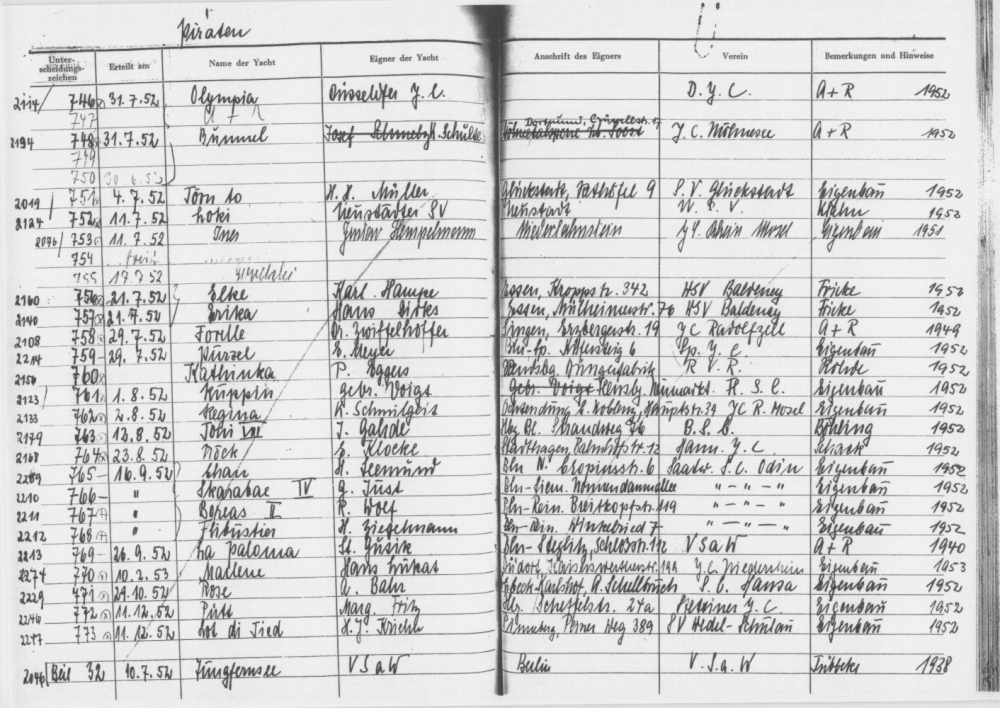 Piraten
Unter-scheidungs-zeichen Erteilt am Name der Yacht Eigner der Yacht Anschrift des Eigners Verein Bemerkungen und Hinweise
2114/ 746 31.7.52 Olympia Düsseldfer Y.C. D.Y.C. A+R 1952
747
2194 748 31.7.52 Bummel Josef H. Schulte Dortmund, Y.C. Möhnesee A+R 1952
749
750
2019 751 4.7.52 Törn to H. H. Müller Glückstadt, 9 S.V. Glückstadt Eigenbau 1952
2124 752 11.7.52 Loki Neustädter SV Neustadt N.S.V. Klahn 1952
753 11.7.52 Ines Gustav Hempelmann Niederlahnstein YC Rhein Mosel Eigenbau 1951
754
755 17.7.52
2160 756 21.7.52 Elke Karl. Hampe Essen, Kroppstr. 342 HSV Baldeney Fricke 1952
2140 757 21.7.52 Erika Hans Dirks Essen, Mülheimerstr. 76 HSV Baldeney Fricke 1952
2108 758 29.7.52 Forelle Dr. Zwiffelhoffer Singen, Erzbergerstr. 19 YC Radolfzell A+R 1949
2214 759 29.7.52 Purzel E. Meyer Bln-Sp. 6 Sp. Y.C. Eigenbau 1952
2150 760 Kathinka P. Eggers Rendsbg. Düngerfabrik R.V.R. Rohde 1952
2123 761 1.8.52 Kuppin Gebr. Voigt Gebr. Voigt Flensbg. F.S.C. Eigenbau 1952
2133 762 2.8.52 Regina K. Schmitgeis Ochtendung b. Koblenz, Hauptstr. 39 YC R. Mosel Eigenbau 1952
2179 763 12.8.52 Toni VII J. Gahde Hbg. Bl. Strandweg 76 B.S.C. Böhling 1952
2168 764 23.8.52 Nöck E. Klocke Stadthagen, Bahnhofstr. 12 Hann. Y.C. Schack 1952
2209 765 16.9.52 Ahan H. Seemund Bln N. Chopinstr. 6 Saatw. S.C. Odin Eigenbau 1952
2210 766 " Skarabae IV G. Just Bln-Siem. Nonnendammallee " - " - " Eigenbau 1952
2211 767 " Boreas II R. Wolf Bln-Rein. Breitkopfstr. 119 " - " - " Eigenbau 1952
2212 768 " Flibustier H. Ziegelmann Bln-Rein. Winkelried 7 " - " - " Eigenbau 1952
2213 769 26.9.52 La Paloma St. Gusik Bln-Steglitz, Schloßstr. 112 VSaW A+R 1940
2274 770 10.2.53 Marlene Hans Lukat Y.C. Niederrhein Eigenbau 1953
2229 771 29.10.52 Rose A. Bahr Lübeck-Karlshof, A. Schellbruch S.C. Hansa Eigenbau 1952
2246 772 11.12.52 Pütt Marg. Fritz Hbg. Scheffelstr. 27a Stettiner Y.C. Eigenbau 1952
2247 773 11.12.52 Lot di Tied H.J. Krichl Weg 389 SV Wedel-Schulau Eigenbau 1952
2046 Beil 32 10.7.52 Jungfernsee VSaW Berlin V.S.a.W Tübbeke 1938